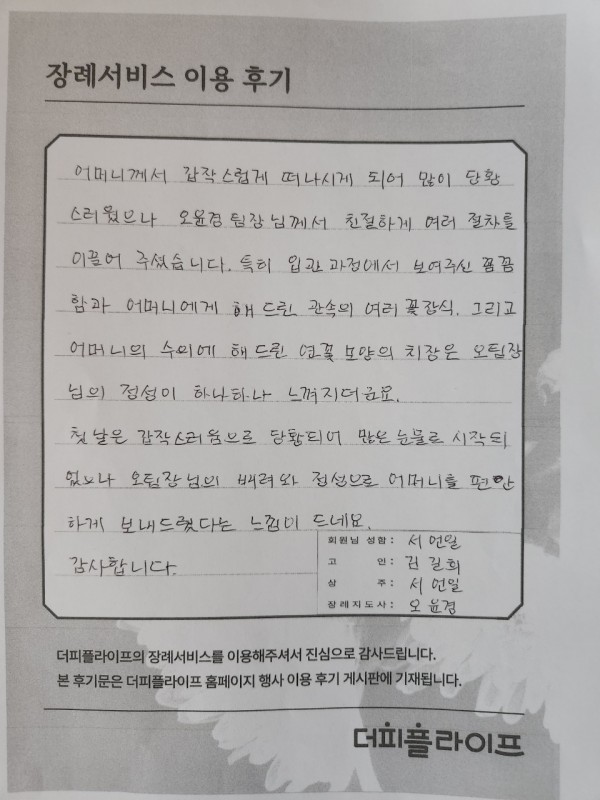 장례서비스 이용 후기
어머니께서 갑작스럽게 떠나시게 되어 많이 당황
스러웠으나 오윤경팀장님께서 친절하게 여러 절차를
이끌어 주셨습니다. 특히 입관과정에서 보여주신 꼼꼼
함과 어머니에게 해드린 관속의 여러 꽃장식. 그리고
어머니의 수의에 해드린 연꽃모양의 치장은 오팀장
님의 정성이 하나하나 느껴지더군요.
첫날은 갑작스러움으로 당황되어 많은 눈물로 시작되
었으나 오팀장님의 배려와 정성으로 어머니를 편안
하게 보내드렸다는 느낌이 드네요.
감사합니다.
회원님 성함: 서언일
고 인: 김길회
상 주: 서언일
장례지도사: 오윤경
더피플라이프의 장례서비스를 이용해주셔서 진심으로 감사드립니다.
본 후기문은 더피플라이프 홈페이지 행사 이용 후기 게시판에 기재됩니다.
더피플라이프